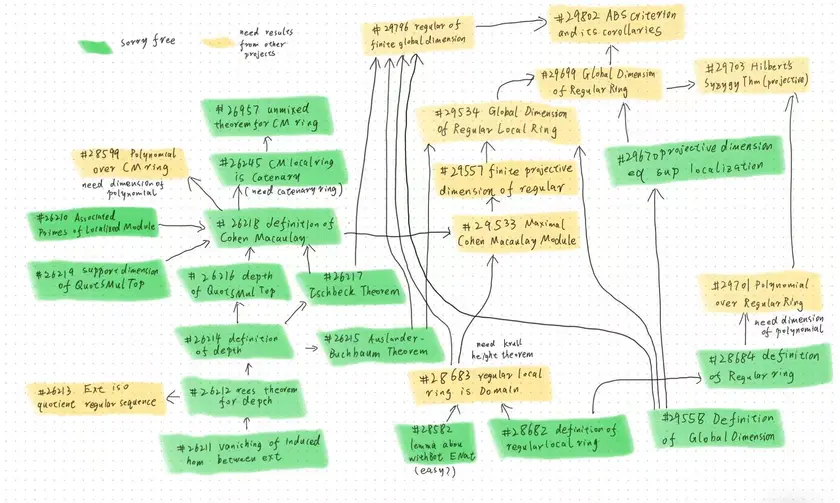 sorry free
need results
from other
projects
#29796 regular of
finite global dimension
#29802 ABS criterion
and its corollaries
#29699 Global Dimension
of Regular Ring
#29703 Hilbert's
Syzygy Thm (projective)
#26957 unmixed
theorem for CM ring
#29534 Global Dimension
of Regular Local Ring
#28599 Polynomial
over CM ring
need dimension of
polynomial
#26245 CM local ring
is Catenary
(need catenary ring)
#29557 finite projective
dimension of regular
#29670 projective dimension
eq sup localization
#26210 Associated
Primes of Localized Module
#26218 definition of
Cohen Macaulay
#29533 Maximal
Cohen Macaulay Module
#26219 support dimension
of QuotSMulTop
#26216 depth
of QuotSMulTop
#26217
Ischbeck Theorem
#29701 Polynomial
over Regular Ring
need dimension
of polynomial
#26214 definition
of depth
#26215 Auslander-
Buchbaum Theorem
need krull
height theorem
#28684 definition
of Regular ring
#26213 Ext iso
quotient regular sequence
#26212 rees theorem
for depth
#28683 regular local
ring is Domain
#26211 vanishing of induced
hom between ext
#28582
lemma abou
withBot ENat
(easy?)
#28682 definition of
regular local ring
#29558 Definition
of Global Dimension